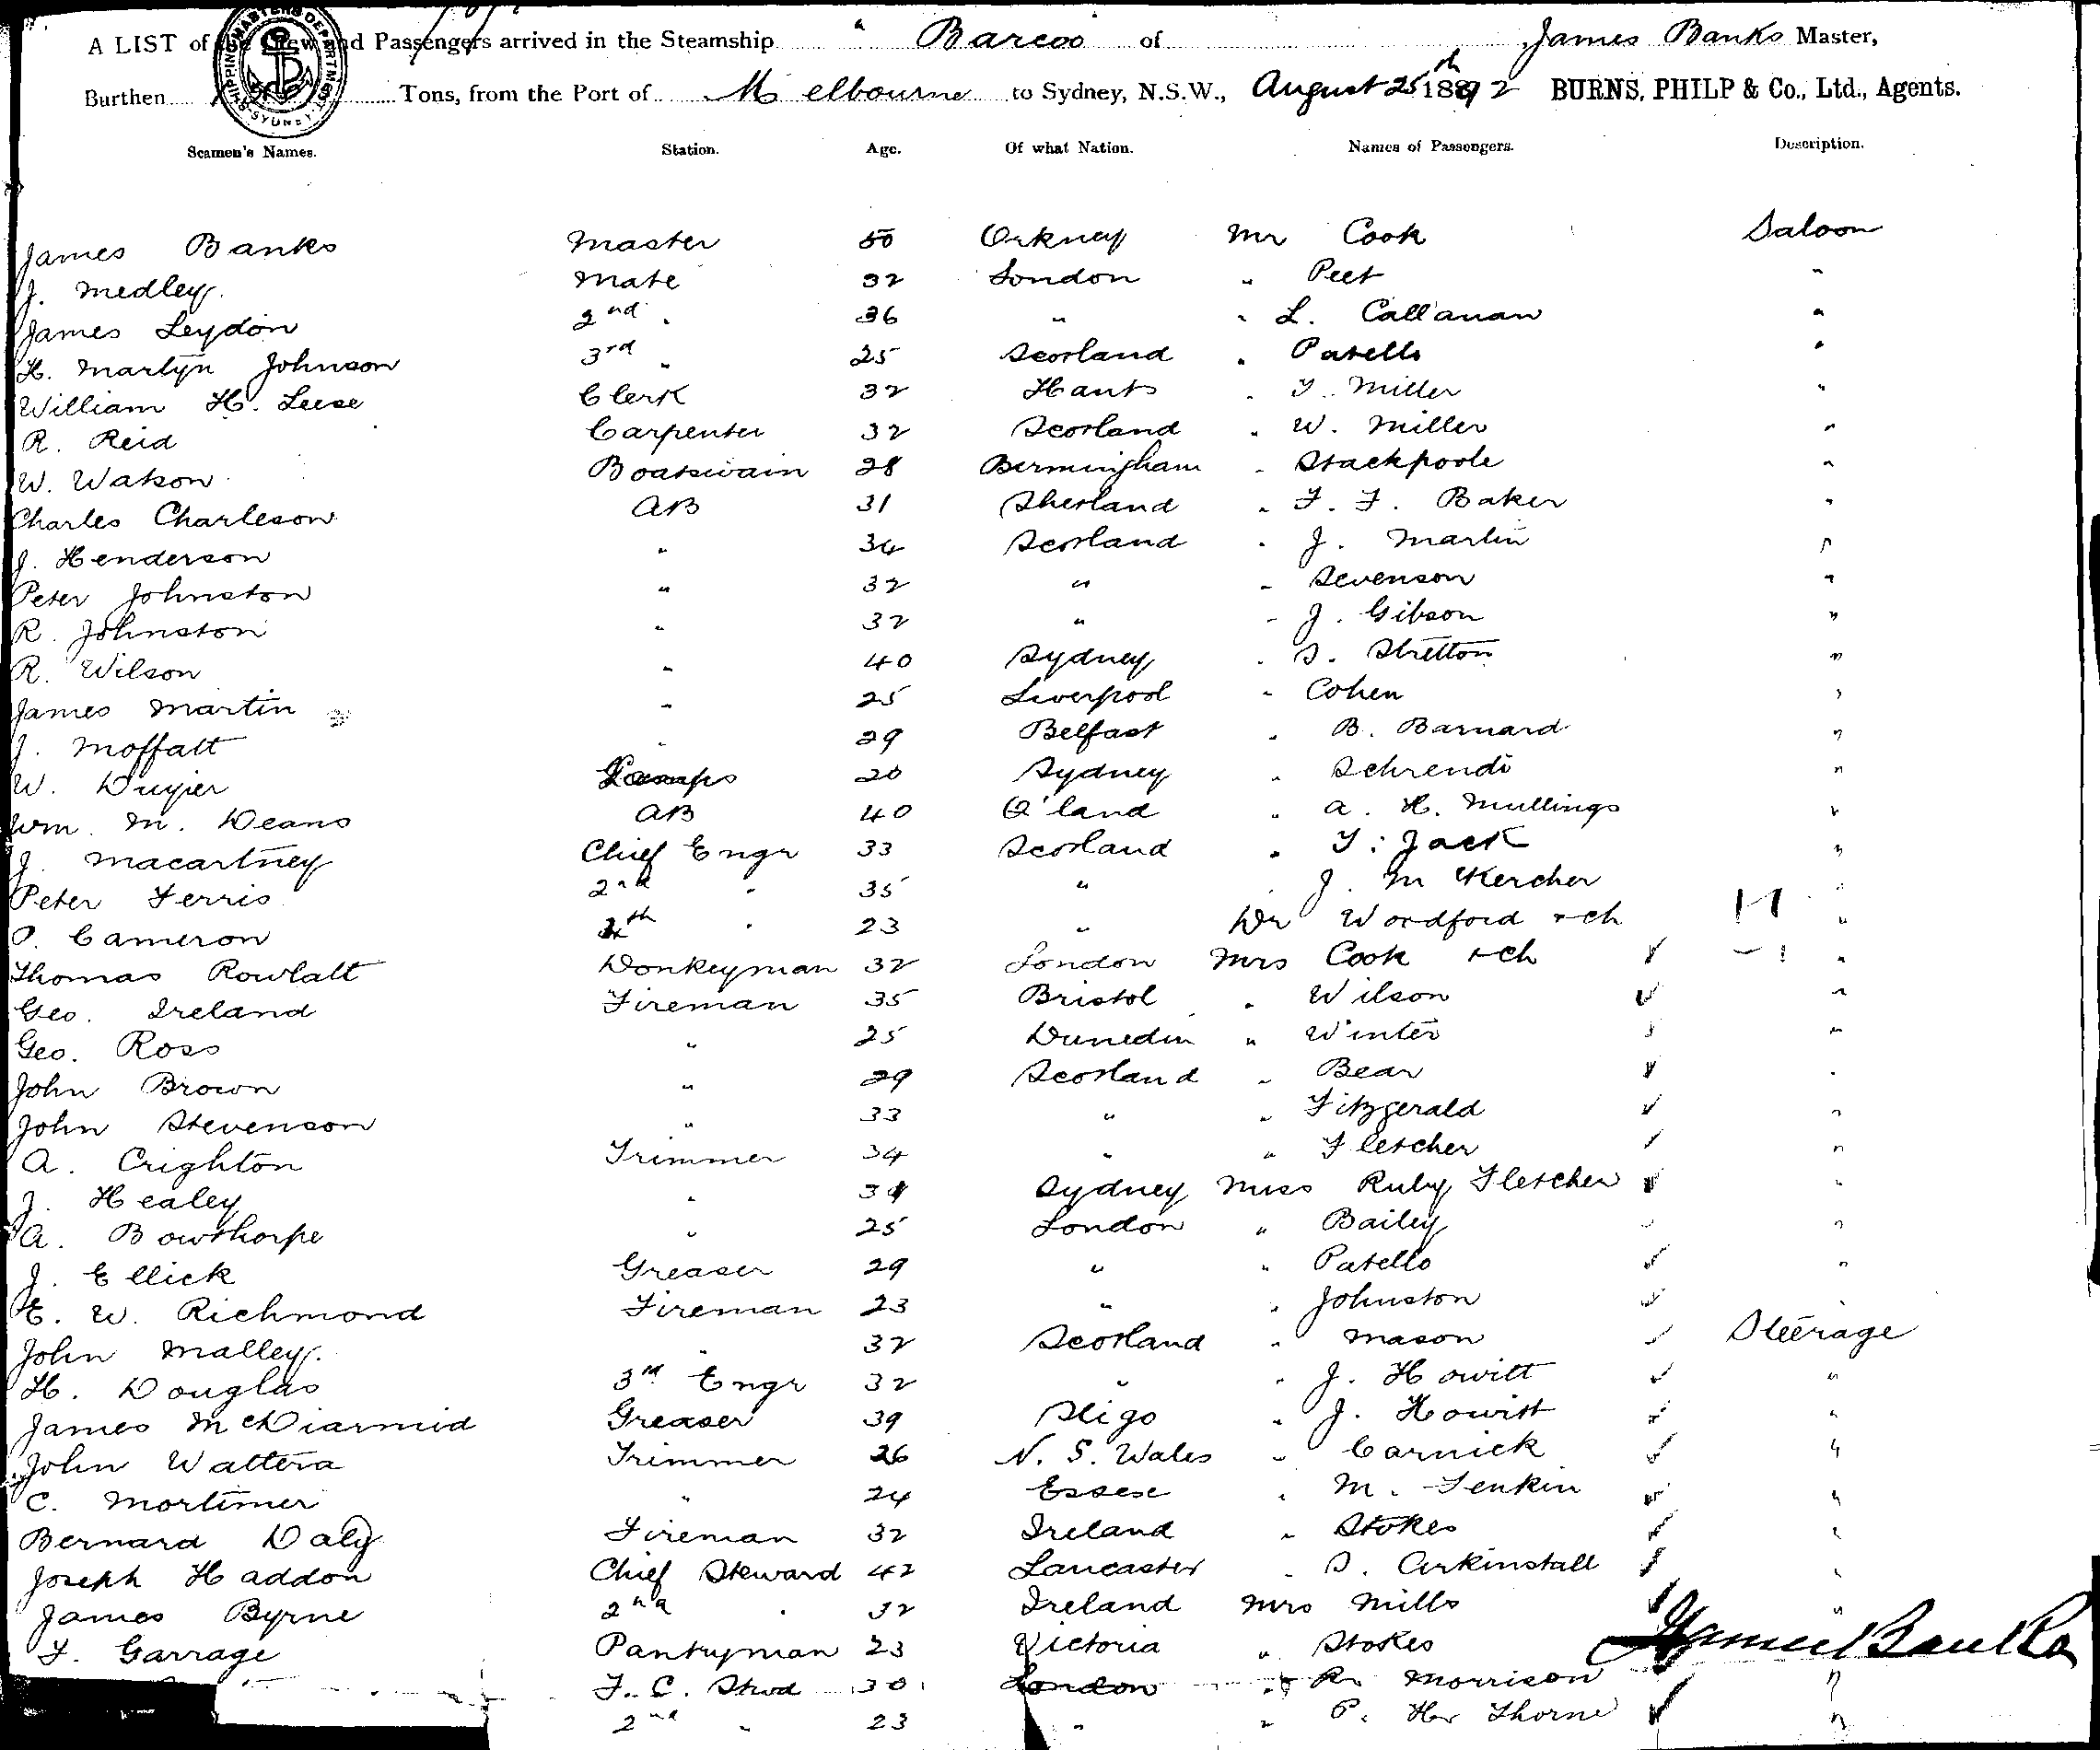 A LIST of the Crew and Passengers arrived in the Steamship " Barcoo of James Banks Master,
Burthen Tons, from the Port of Melbourne to Sydney, N.S.W., August 25th 1892 BURNS, PHILP & Co., Ltd., Agents.
SHIPPING MASTERS DEPARTMENT SYDNEY
Seamen's Names. Station. Age. Of what Nation. Names of Passengers. Description.
James Banks Master 50 Orkney Mr Cook Saloon
J. Medley. Mate 32 London " Peet "
James Leydon 2nd " 36 " " L. Callanan "
H. Martyn Johnson 3rd " 25 Scotland " Patello "
William H. Leese Clerk 32 Hants " T. Miller "
R. Reid Carpenter 32 Scotland " W. Miller "
W. Watson Boatswain 28 Bermingham " Stackpoole "
Charles Charleson AB 31 Shetland " F. F. Baker "
J. Henderson " 34 Scotland " J. Martin "
Peter Johnston " 32 " " Stevenson "
R. Johnston " 32 " " J. Gibson "
R. Wilson " 40 Sydney " S. Stretton "
James Martin " 25 Liverpool " Cohen "
J. Moffatt " 29 Belfast " B. Barnard "
W. Lamps 20 Sydney " Schrendi "
Wm. M. Deans AB 40 Q'land " A. H. Mullings "
J. Macartney Chief Engr 33 Scotland " T. Jack "
Peter Ferris 2nd " 35 " " J. McKercher "
Cameron 4th " 23 " Dr Woodford + ch "
Thomas Rowlatt Donkeyman 32 London Mrs Cook + ch "
Geo. Ireland Fireman 35 Bristol " Wilson "
Geo. Ross " 25 Dunedin " Winter "
John Brown " 29 Scotland " Bear "
John Stevenson " 33 " " Fitzgerald "
A. Crighton Trimmer 34 " " Fletcher "
J. Healey " 31 Sydney Miss Ruby Fletcher "
A. Bowthorpe " 25 London " Bailey "
J. Ellick Greaser 29 " " Patello "
E. W. Richmond Fireman 23 " " Johnston "
John Malley. " 32 Scotland " Mason Steerage
H. Douglas 3rd Engr 32 " " J. Howitt "
James McDiarmid Greaser 39 Sligo " J. Howitt "
John Trimmer 26 N. S. Wales " Carnick "
C. Mortimer " 24 Essex " M. Jenkin "
Bernard Daly Fireman 32 Ireland " Stokes "
Joseph Haddon Chief Steward 42 Lancaster " S. Arkinstall "
James Byrne 2nd " 32 Ireland Mrs Mills "
F. Garrage Pantryman 23 Victoria " Stokes James Banks
F. C. Stwd 30 London " R. Morrison "
2nd " 23 " " P. Thorne "